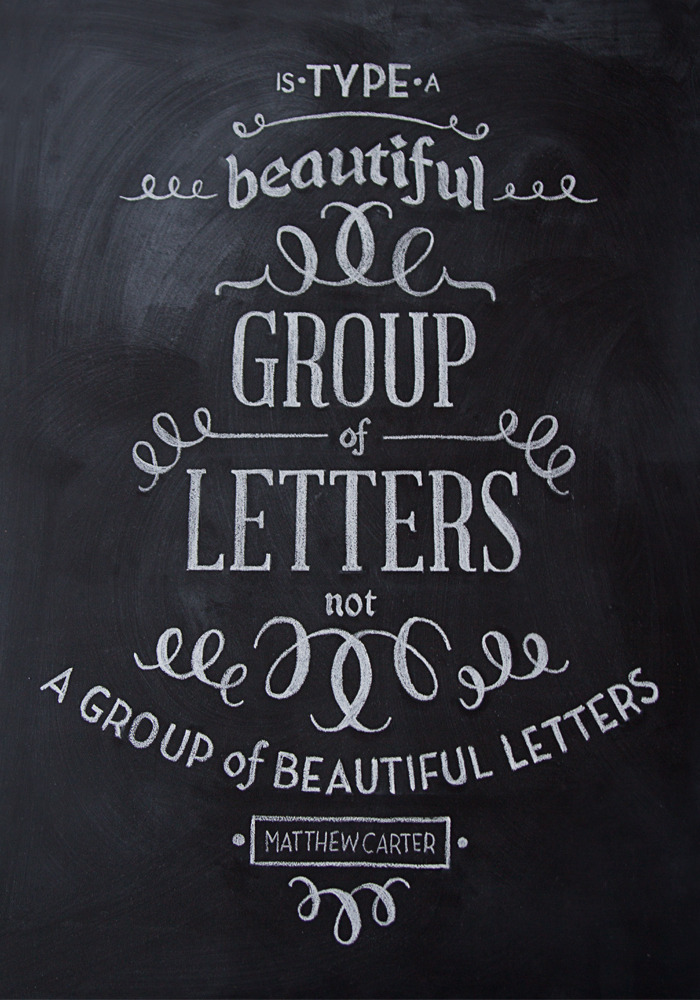 IS·TYPE·A
beautiful
GROUP
of
LETTERS
not
A GROUP of BEAUTIFUL LETTERS
MATTHEW CARTER